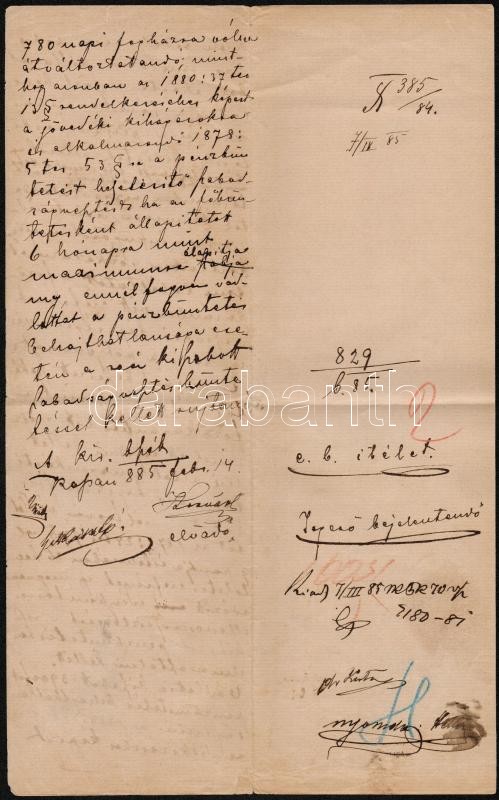 780 napi fogházra volna
átváltoztatandó; mint-
hogy azonban az 1880:37 tcz
13 § rendelkezéséhez képest
a jövedéki kihágásokra
is alkalmazandó 1878:
5 tcz 53 § a a pénzbün
tetést helyettesítő szabad-
ságvesztést ha az főbün-
tetésként állapittatott
6 hónapra mint
maximumra állapitja
meg ennélfogva vád-
lottat a pénzbüntetés
behajthatlansága ese-
tén a reá kiszabott
szabadságvesztés bünte
téssel kellett sujtani
A kir. tszék
885 febr. 14.
előadó
385/84.
7/III 85
829
b. 85.
2
e. b. itélet.
Jegyző bejelentendő
Kiad 7/III 85
2180-85
H
darabanth